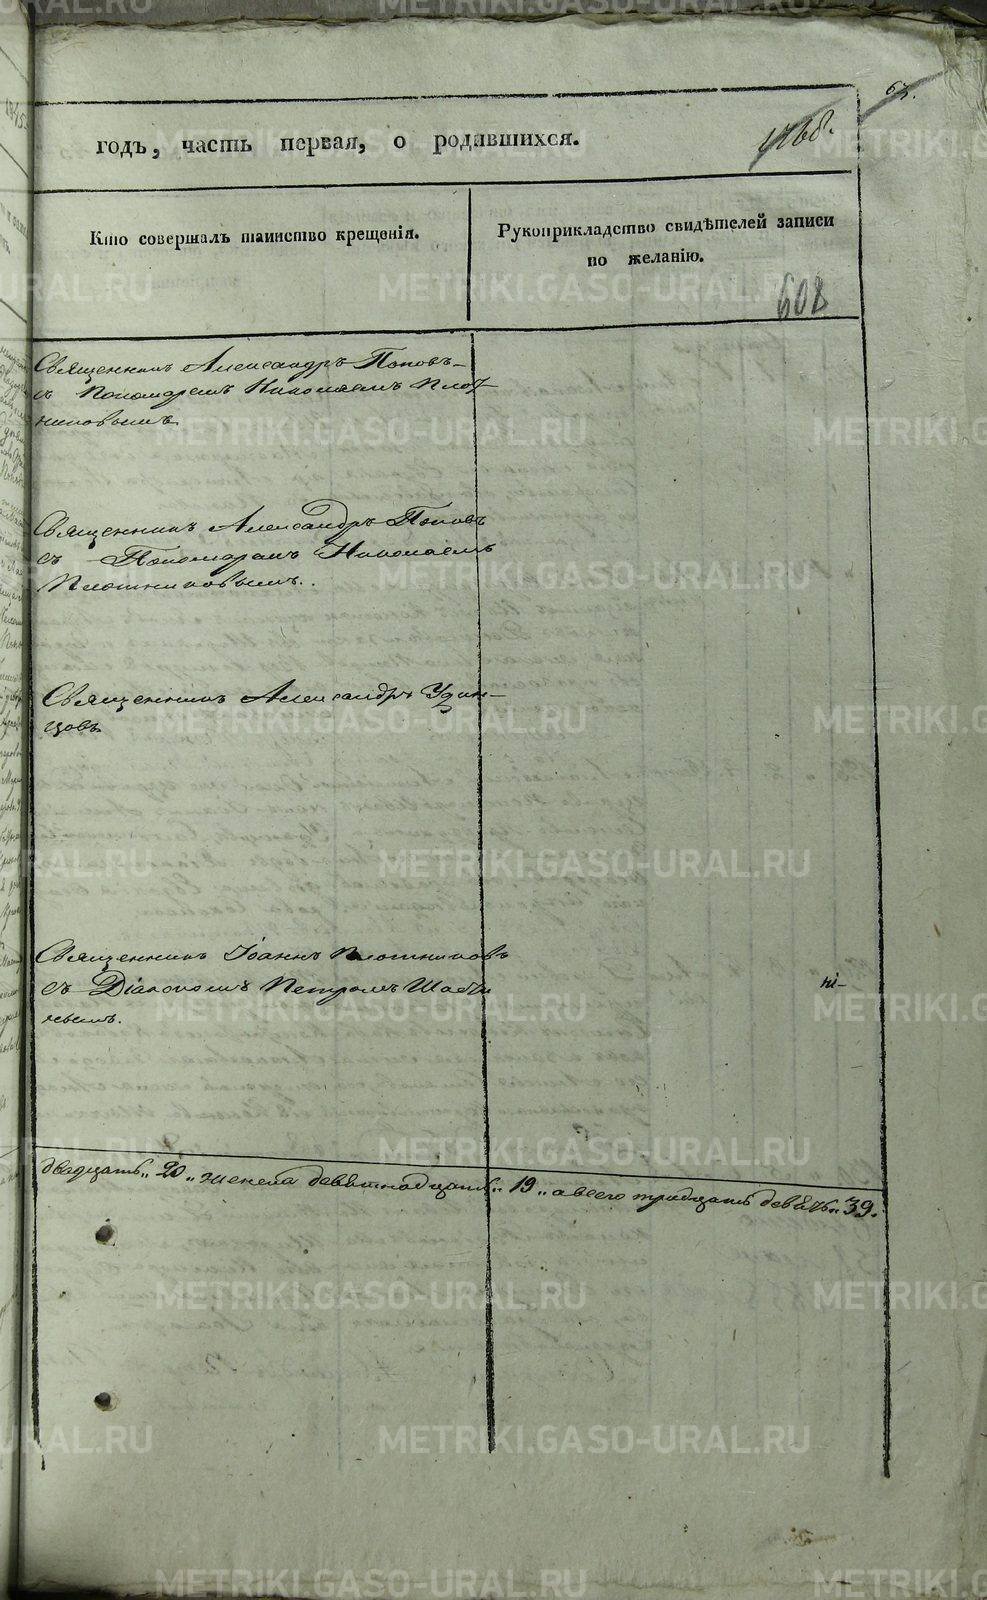 годъ, часть первая, о родившихся.
Кто совершалъ таинство крещенія.
Рукоприкладство свидѣтелей записи
по желанію.
608
Священникъ Александръ Поповъ
съ Пономаремъ Николаемъ Плот
никовымъ.
Священникъ Александръ Поповъ
съ Пономаремъ Николаемъ
Плотниковымъ.
Священникъ Александръ Удин-
цовъ
Священникъ Іоаннъ Плотниковъ
съ Діакономъ Петромъ
нымъ.
ні-
двадцать „20„ женска девятнадцать „19„ а всего тридцать девять „39.
METRIKI.GASO-URAL.RU